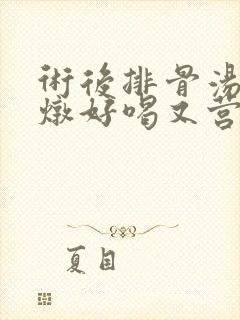 術後排骨湯
燉好喝又营
夏目